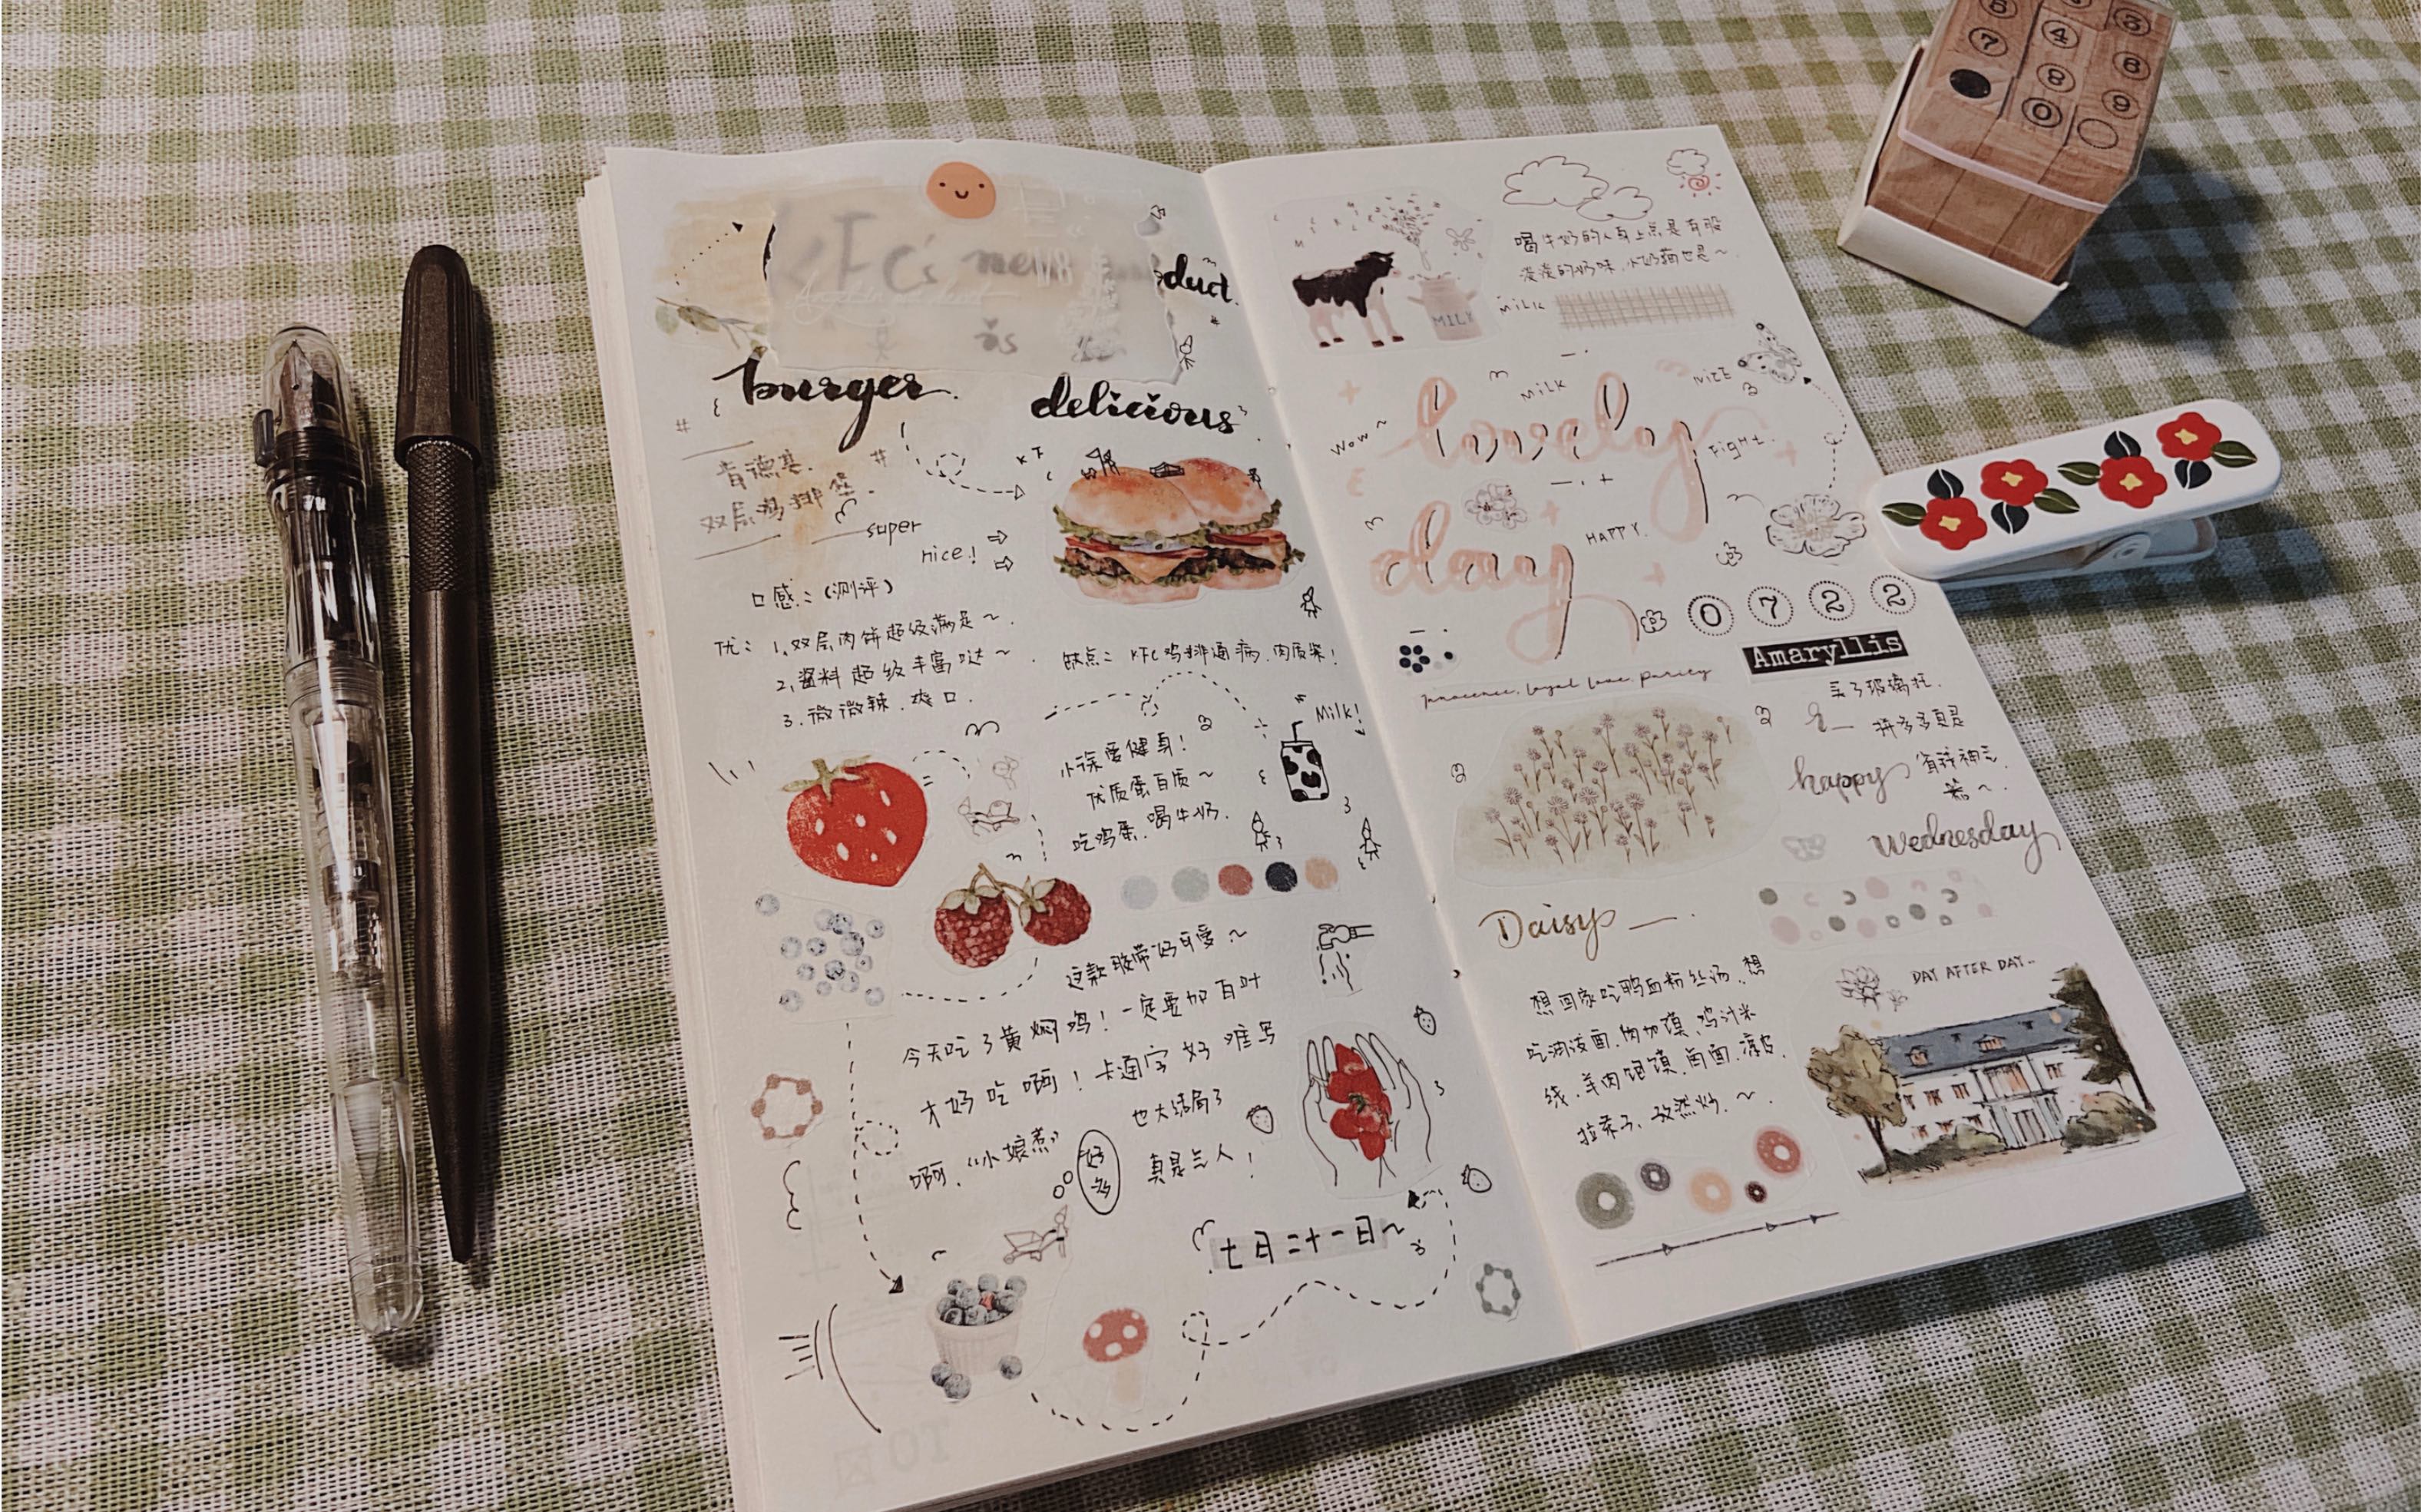 KFC's new
duct.
burger.
delicious
肯德基.
双层鸡排堡.
KFC
super
nice!
口感:(测评)
优: 1.双层肉饼超级满足~.
2.酱料超级丰富哒~
3.微微辣.爽口.
缺点: KFC鸡排通病.肉质柴!
Milk!
爱健身!
优质蛋白质~
吃鸡蛋.喝牛奶.
这款胶带好可爱~
今天吃了黄焖鸡!一定要加百叶
才好吃啊!卡通字好难写
啊.“小娘惹”
好多
也大结局了
真是气人!
七月二十一日~
MILK
喝牛奶的人身上总是有股
淡淡的奶味.小奶猫也是~.
MILK
MILK
NICE
Wow~
lovely
Fight.
day
HAPPY.
0722
Amaryllis
Innocence, loyal love, purity
买了玻璃杯.
拼多多真是
happy
省钱神
器~.
Wednesday
Daisy
想回家吃鸭血粉丝汤.想
吃油泼面.肉夹馍.鸡汁米
线.羊肉泡馍.
孜然炒.~.
DAY AFTER DAY...
4
7
8
8
0
9